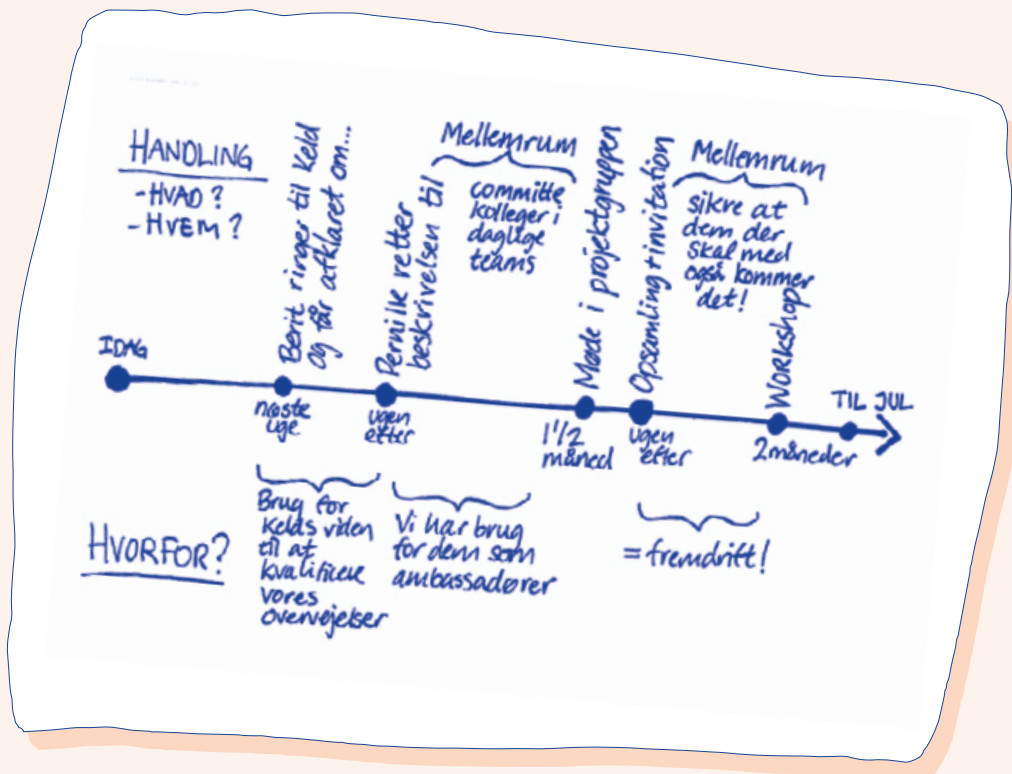 HANDLING
- HVAD?
- HVEM?
Berit ringer til Keld
og får afklaret om...
Pernilke retter
beskrivelsen til
Mellemrum
committe
kolleger i
daglige
teams
Møde i projektgruppen
Opsamling + invitation
Mellemrum
sikre at
dem der
skal med
også kommer
det!
Workshop
IDAG
næste
uge
ugen
efter
1 1/2
måned
ugen
efter
2 måneder
TIL JUL
HVORFOR?
Brug for
Kelds viden
til at
kvalificere
vores
overvejelser
Vi har brug
for dem som
ambassadører
= fremdrift!